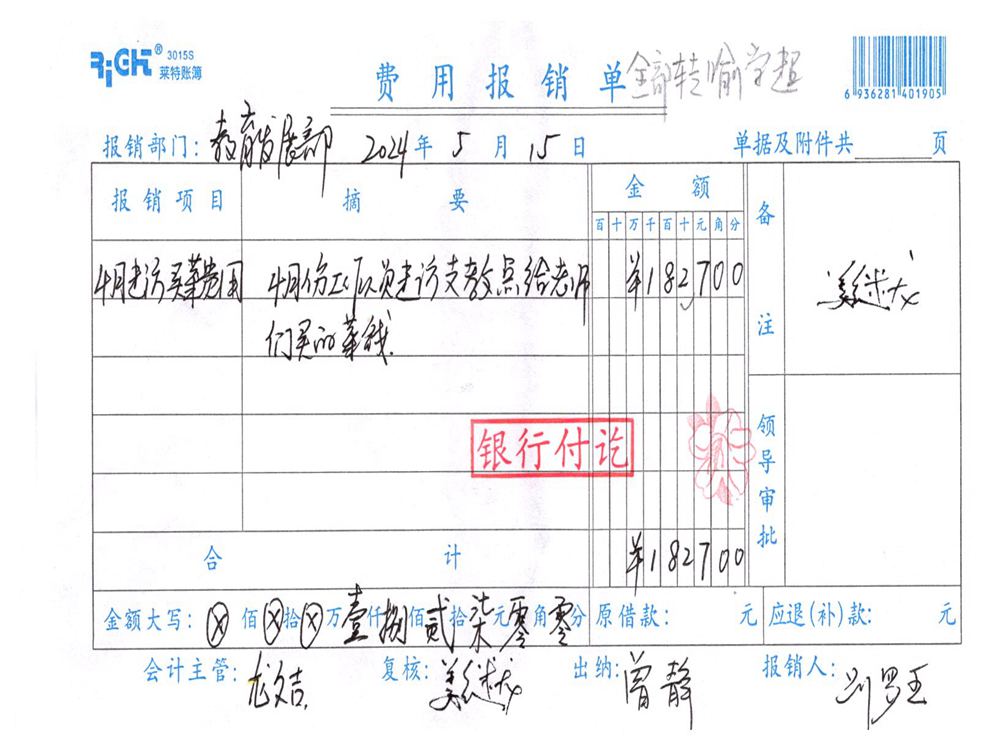 RiGHT® 3015S
莱特账簿
费用报销单 全部转喻学超
6 936281 401905
报销部门：教育发展部 2024年5月15日 单据及附件共 页
报销项目 摘要 金额 备注
百十万千百十元角分
4月走访买菜费用 4月份工作人员走访支教点给老师 ¥182700
们买的菜钱.
银行付讫
领导审批
合计 ¥182700
金额大写：ⓧ佰ⓧ拾ⓧ万壹仟捌佰贰拾柒元零角零分 原借款： 元 应退(补)款： 元
会计主管：龙文吉 复核：姜述龙 出纳：曾静 报销人：刘罗王